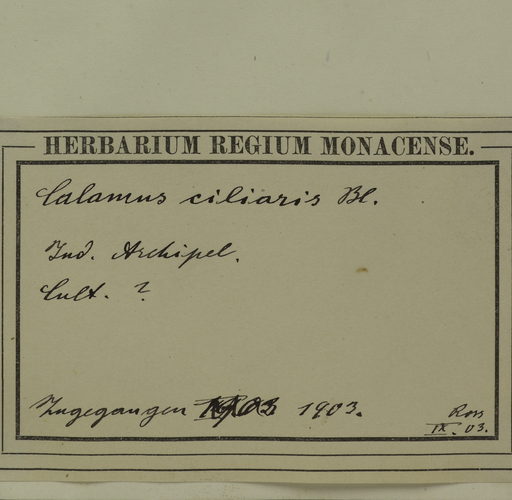 HERBARIUM REGIUM MONACENSE.
Calamus ciliaris Bl.
Ind. Archipel.
Cult. ?
Zugegangen 1903.
Ross
IX. 03.